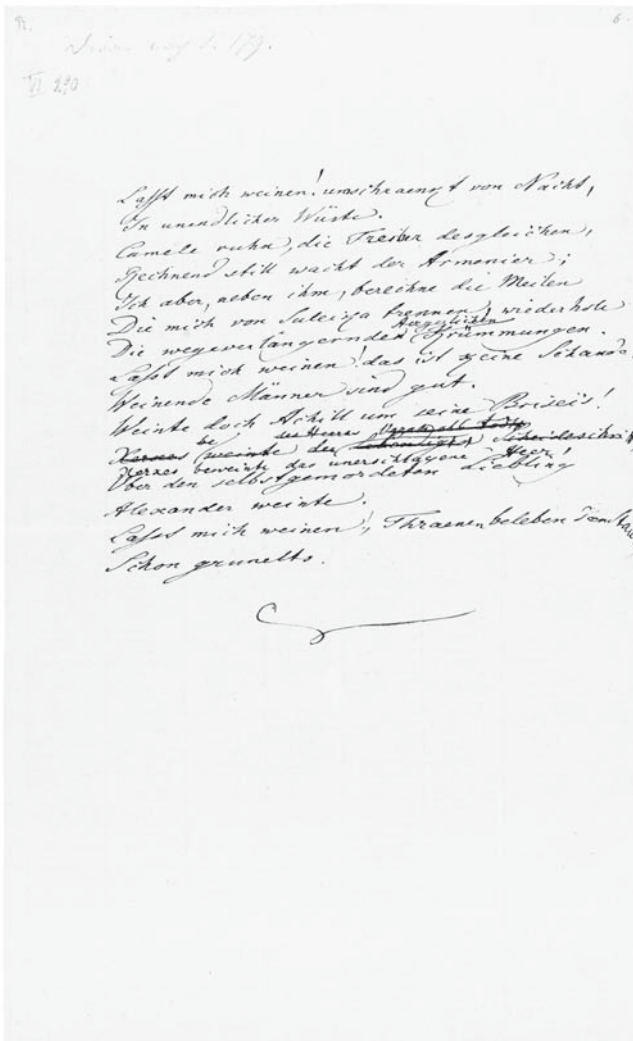 6
VI 290
Lasst mich weinen! umschraenkt von Nacht,
In unendlicher Wüste.
Camele ruhn, die Treiber desgleichen,
Rechnend still wacht der Armenier;
Ich aber, neben ihm, berechne die Meilen
Die mich von Suleika trennen, wiederhole
Die wegeverlängernden Aergerlichen Krümmungen.
Lasst mich weinen! das ist keine Schande.
Weinende Männer sind gut.
Weinte doch Achill um seine Briseis!
Xerxes beweinte des Heeres
Xerxes beweinte das unerschlagene Heer!
Über den selbstgemordeten Liebling
Alexander weinte.
Lasst mich weinen!, Thraenen beleben den Stau
Schon grunelts.